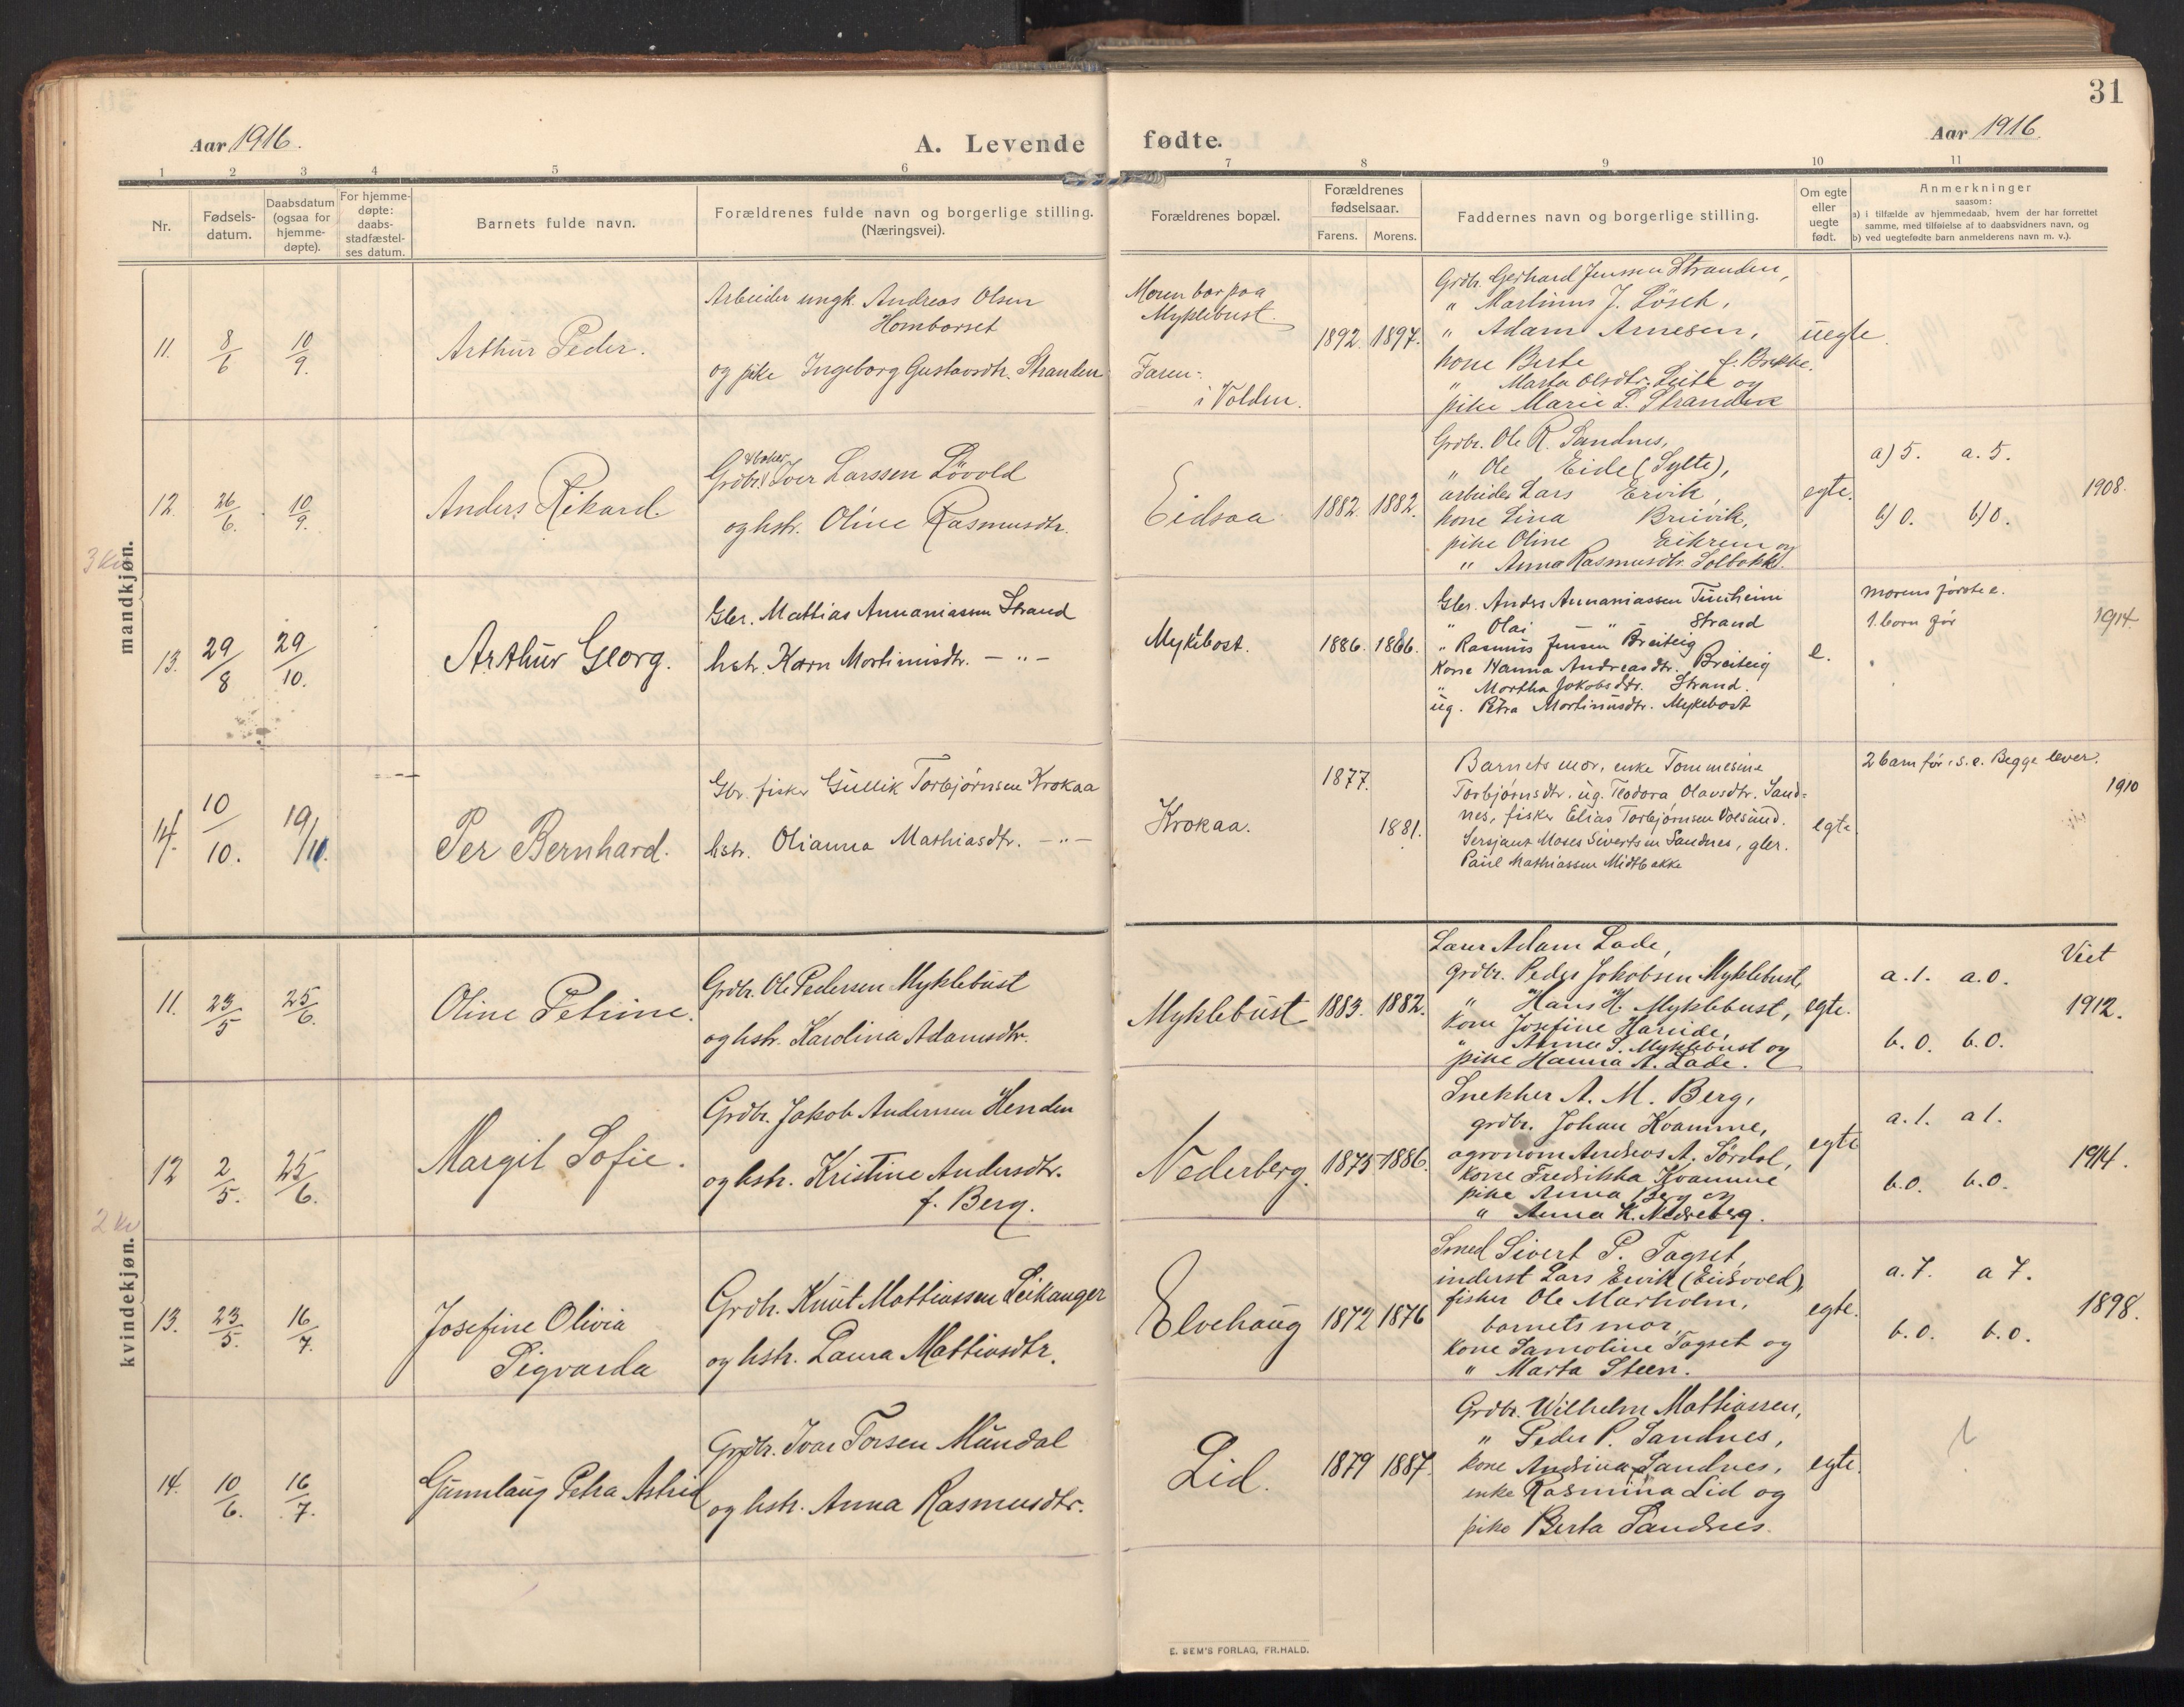 31
Aar 1916.
A. Levende fødte.
Aar 1916
1 2 3 4 5 6 7 8 9 10 11
Nr.
Fødsels-
datum.
Daabsdatum
(ogsaa for
hjemme-
døpte).
For hjemme-
døpte:
daabs-
stadfæstel-
ses datum.
Barnets fulde navn.
Forældrenes fulde navn og borgerlige stilling.
(Næringsvei).
Forældrenes bopæl.
Forældrenes
fødselsaar.
Farens. Morens.
Faddernes navn og borgerlige stilling.
Om egte
eller
uegte
født.
Anmerkninger
saasom:
a) i tilfælde av hjemmedaab, hvem der har forrettet
samme, med tilføielse av to daabsvidners navn, og
b) ved uegtefødte barn anmelderens navn m. v.).
mandkjøn.
11. 8/6 10/9.
Arthur Peder.
Arbeider ungk. Andreas Olsen
Homborset
og pike Ingeborg Gustavsdtr. Stranden
Moren bor paa
Myklebust.
Faren
i Volden.
1892. 1897.
Grdbr. Gerhard Jenssen Stranden,
" Martinus J. Løseth,
" Adam Arnesen,
kone Berte f. Brekke.
" Marta Olsdtr. Leite og
pike Marie L. Stranden
uegte.
12. 26/6. 10/9.
Anders Rikard.
Grdbr. Iver Larssen Løvold
og hstr. Oline Rasmusdtr.
Eidsaa
1882. 1882.
Grdbr. Ole R. Sandnes,
" Ole Eide (Sylte),
arbeider Lars Ervik,
kone Lina Breivik,
pike Oline Eikrem og
" Anna Rasmusdtr. Solbakk.
egte.
a) 5. a. 5.
b) 0. b) 0.
1908.
13. 29/8 29/10.
Arthur Georg.
Gbr. Mattias Annaniassen Strand
hstr. Karn Martinusdtr. — " —
Myklebost.
1886. 1886.
Gbr. Anders Annaniassen Tunheim
" Olai — " — Strand
" Rasmus Jensen Breiteig
Kone Hanna Andreasdtr. Breiteig
" Martha Jakobsdtr. Strand.
ug. Petra Martinusdtr. Myklebost
e.
morens første e.
1. barn før
1914.
14. 10/10. 19/10.
Per Bernhard.
Gbr. fisker Gullik Torbjørnsen Krokaa
hstr. Olianna Mathiasdtr. — " —
Krokaa.
1877.
1881.
Barnets mor, enke Tommesine
Torbjørnsdtr. ug. Teodora Olavsdtr. Sand-
nes, fisker Elias Torbjørnsen Voksund.
Sersjant Moses Sivertsen Sandnes, gbr.
Paul Mathiassen Midtbakke
egte
2 barn før i s. e. Begge lever.
1910
kvindekjøn.
11. 23/5 25/6.
Oline Petrine.
Grdbr. Ole Pedersen Myklebust
og hstr. Karolina Adamsdtr.
Myklebust
1883. 1882.
Lars Adam Lade,
grdbr. Peder Jakobsen Myklebust,
" Hans H. Myklebust,
kone Josefine Hareide,
" Anna S. Myklebust og
pike Hanna A. Lade.
egte.
a. 1. a. 0.
b. 0. b. 0.
Viet
1912.
12 2/5. 25/6.
Margit Sofie.
Grdbr. Jakob Andersen Henden
og hstr. Kristine Andersdtr.
f. Berg.
Nederberg.
1875 1886.
Snekker A. M. Berg,
grdbr. Johan Kvamme,
agronom Andreas A. Sørdal,
kone Fredrikka Kvamme
pike Anna Berg og
" Anna K. Nedreberg.
egte
a. 1. a 1.
b. 0. b. 0.
1914.
13. 23/5. 16/7.
Josefine Olivia
Sigvarda
Grdbr. Knut Mattiassen Leikanger
og hstr. Laura Mattiasdtr.
Elvehaug
1872 1876
Smed Sivert P. Tagset,
inderst Lars Ervik (Eidsvold),
fisker Ole Marholm,
barnets mor,
kone Samoline Tagset og
" Marta Steen.
egte.
a. 7. a 7.
b. 0. b. 0.
1898.
14. 10/6. 16/7.
Gunnlaug Petra Astrid
Grdbr. Ivar Torsen Mundal
og hstr. Anna Rasmusdtr.
Lid.
1879 1887.
Grdbr. Wilhelm Mattiassen,
" Peder P. Sandnes,
kone Andrina Sandnes,
enke Rasmina Lid og
pike Berta Sandnes.
egte.
E. SEM'S FORLAG, FR.HALD.